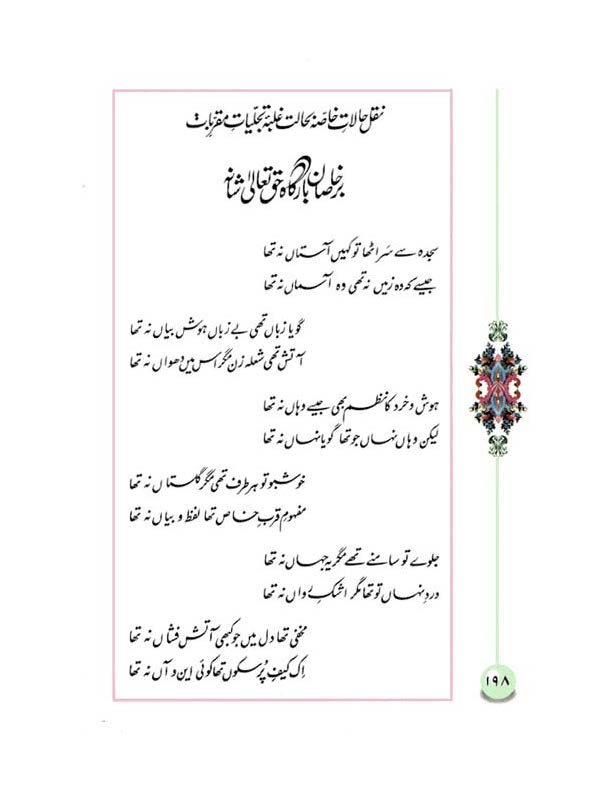 نقل حالاتِ خاصّہ بحالت غلبۂ تجلّیاتِ مقرّبات
بر خاصانِ بارگاہ حق تعالیٰ شانہٗ
سجدہ سے سَر اٹھا تو کہیں آستاں نہ تھا
جیسے کہ وہ زمیں نہ تھی وہ آسماں نہ تھا
گویا زباں تھی بے زباں ہوش بیاں نہ تھا
آتش تھی شعلہ زن مگر اس میں دھواں نہ تھا
ہوش و خرد کا نظم بھی جیسے وہاں نہ تھا
لیکن وہاں نہاں جو تھا گویا نہاں نہ تھا
خوشبو تو ہر طرف تھی مگر گلستاں نہ تھا
مفہومِ قربِ خاص تھا لفظ و بیاں نہ تھا
جلوے تو سامنے تھے مگر یہ جہاں نہ تھا
دردِ نہاں تو تھا مگر اشکِ رواں نہ تھا
مخفی تھا دل میں جو کبھی آتش فشاں نہ تھا
اِک کیفِ پُرسکوں تھا کوئی این و آں نہ تھا
۱۹۸